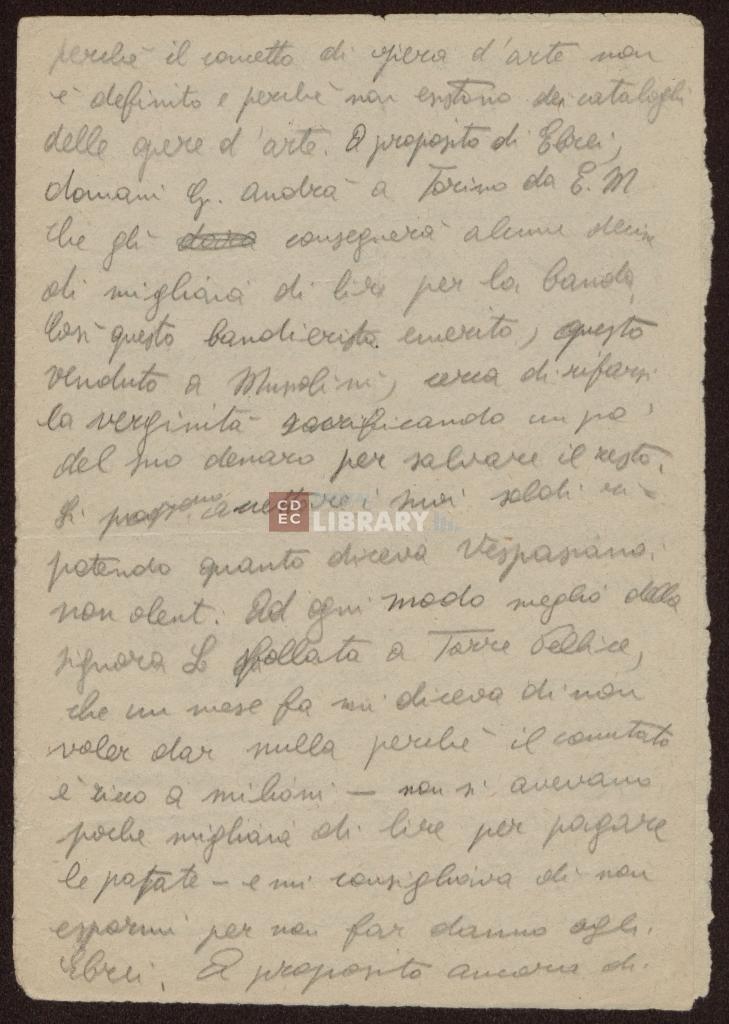 perchè il concetto di opera d'arte non
è definito e perchè non esistono dei cataloghi
delle opere d'arte. A proposito di Ebrei,
domani G. andrà a Torino da E. M
che gli consegnerà alcune decine
di migliaia di lire per la banda.
Così questo bandierista emerito, questo
venduto a Mussolini, cerca di rifarsi
la verginità sacrificando un po'
del suo denaro per salvare il resto.
Si possono accettare i suoi soldi ri-
petendo quanto diceva Vespasiano:
non olent. Ad ogni modo meglio della
signora L sfollata a Torre Pellice,
che un mese fa mi diceva di non
voler dar nulla perchè il comitato
è ricco a milioni — non si avevano
poche migliaia di lire per pagare
le patate — e mi consigliava di non
espormi per non far danno agli
Ebrei. A proposito ancora di
CDEC
LIBRARY